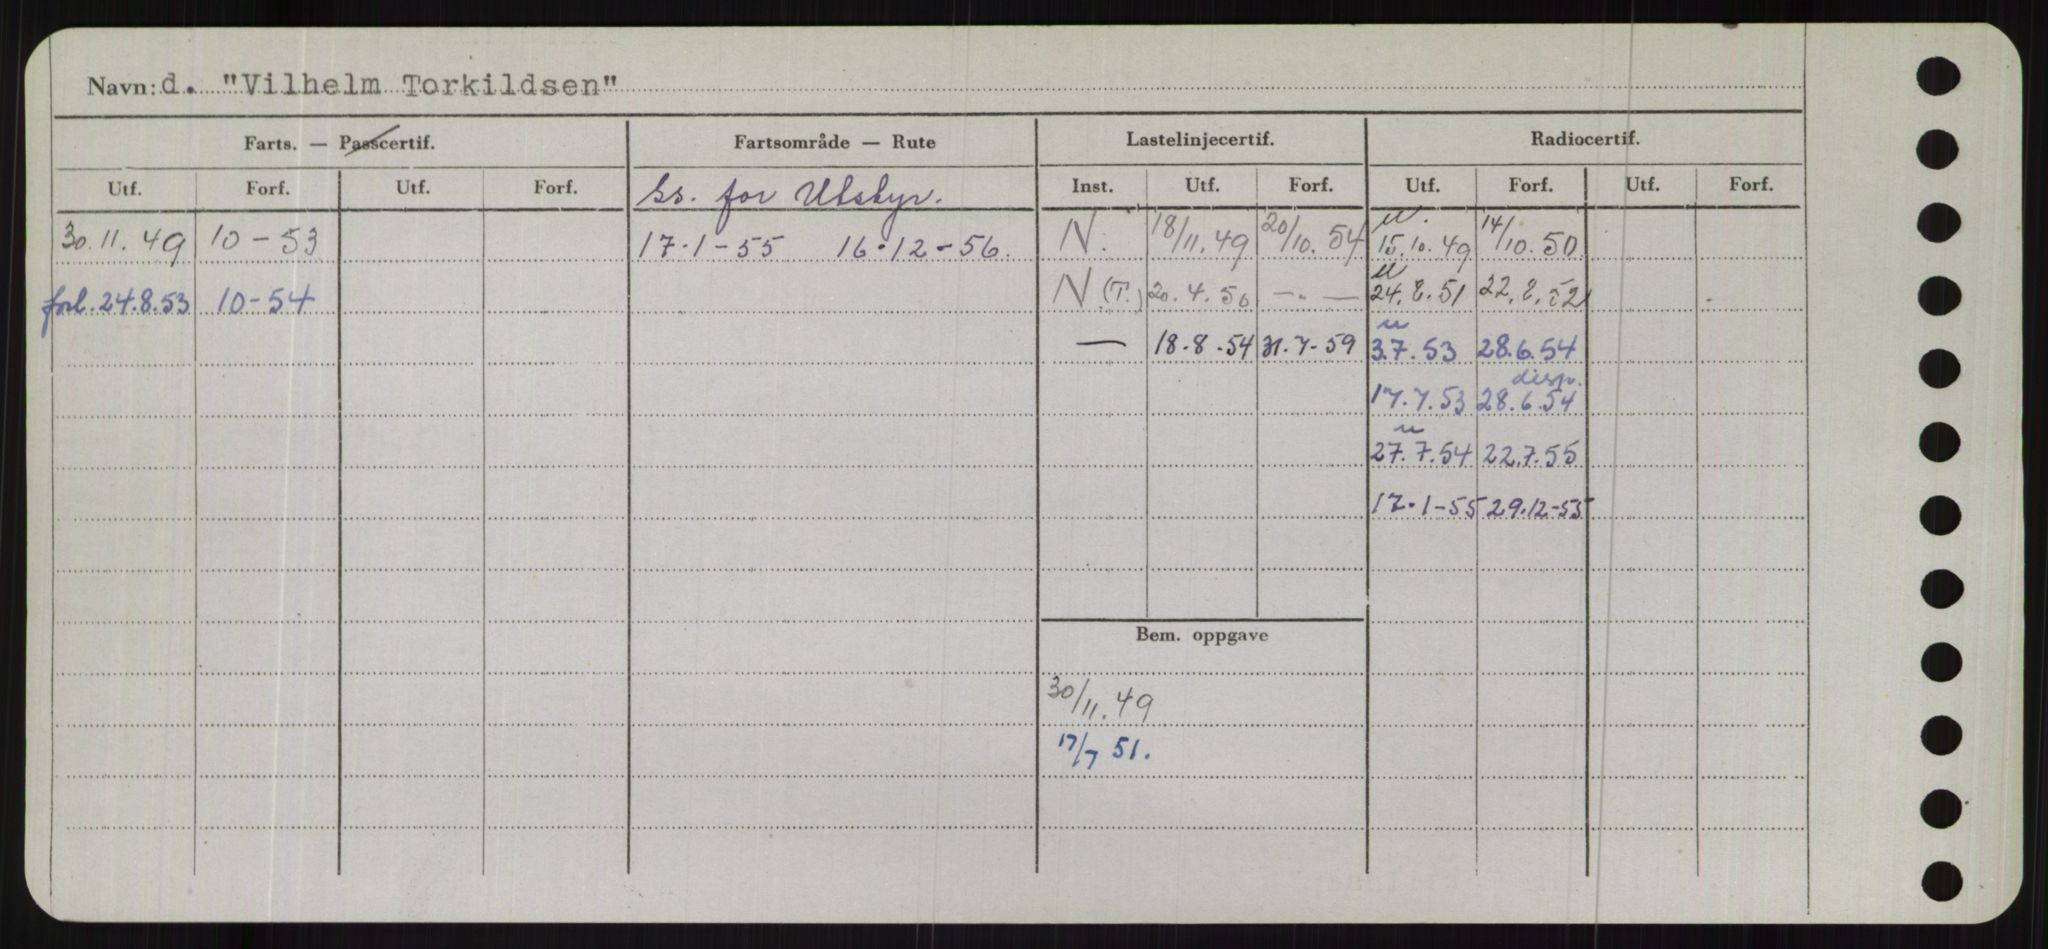 Navn: d. "Vilhelm Torkildsen"
Farts. — Passcertif. Fartsområde — Rute Lastelinjecertif. Radiocertif.
Utf. Forf. Utf. Forf. Ss. for Utstyr. Inst. Utf. Forf. Utf. Forf. Utf. Forf.
30.11.49 10-53 17-1-55 16-12-56. N. 18/11.49 20/10.54 15.10.49 14/10.50
forl. 24.8.53 10-54 N (T.) 20.4.50 —.— 24.8.51 22.8.52
— 18.8.54 31.7-59 3.7.53 28.6.54
disp.
17.7.53 28.6.54
27.7.54 22.7.55
17.1-55 29.12-55
Bem. oppgave
30/11.49
17/7 51.